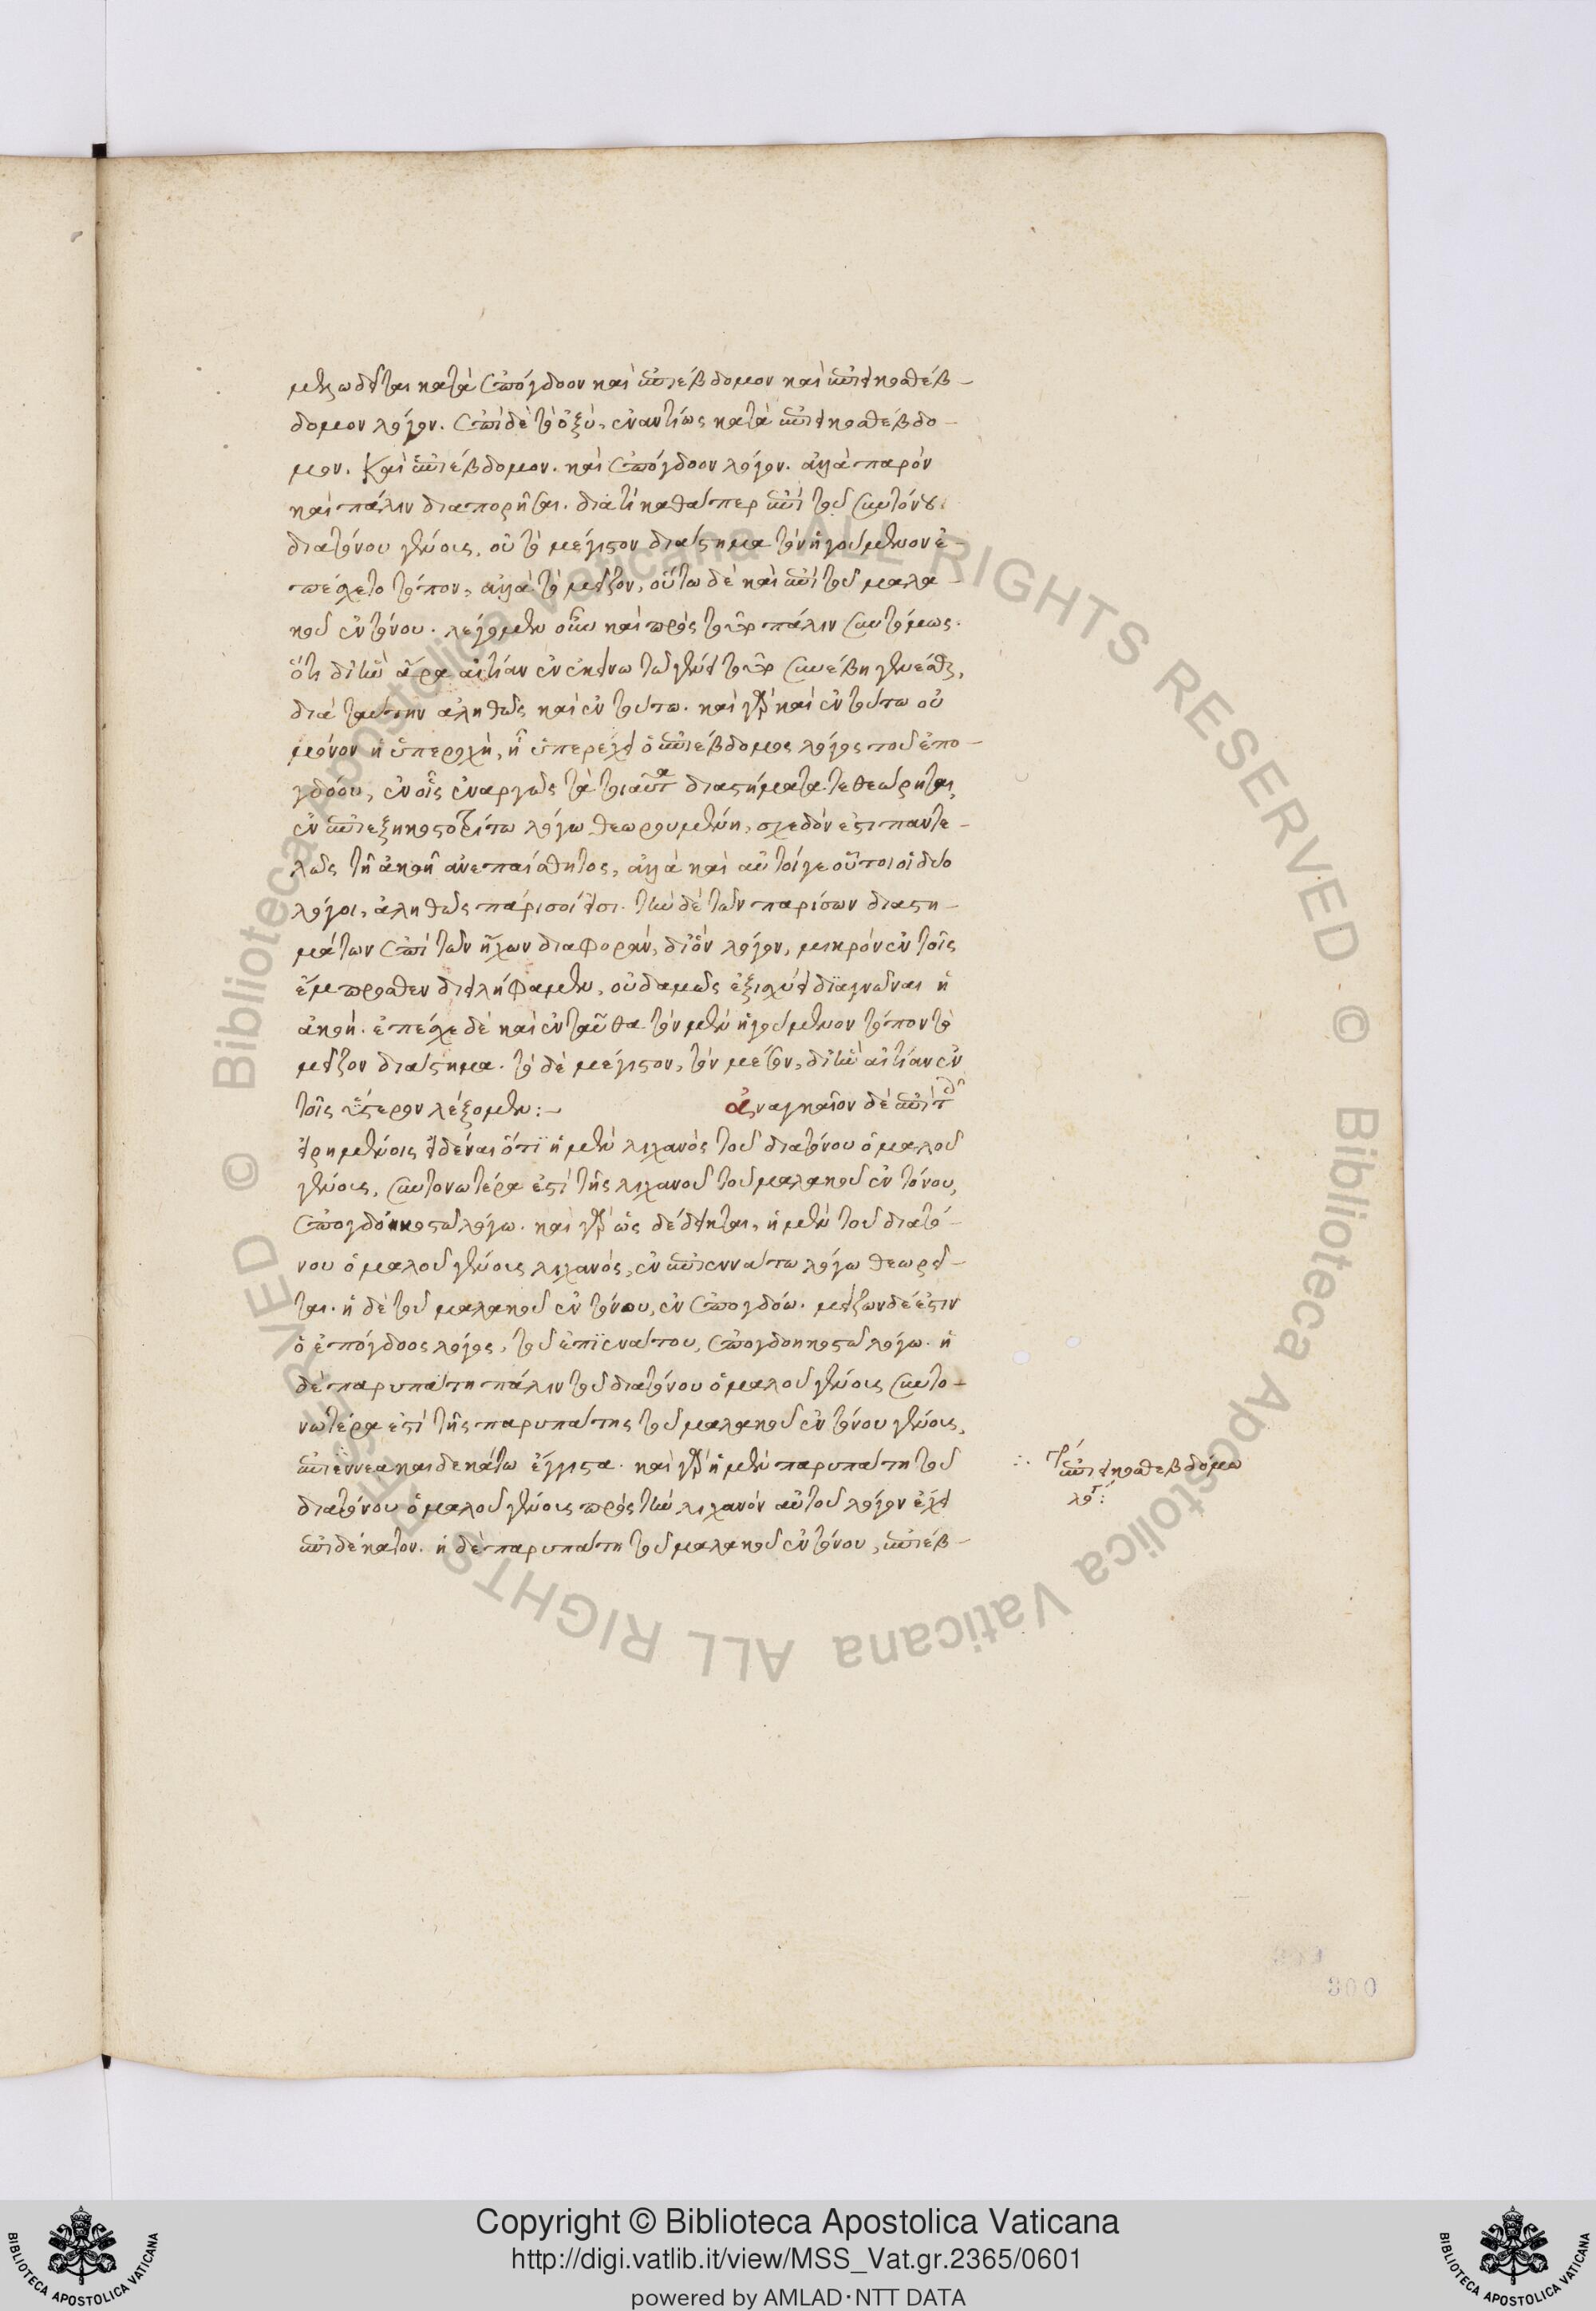 μελωδεῖται κατὰ ἐπόγδοον καὶ ἐπιέβδομον καὶ ἐπιεικοσθέβ-
δομον λόγον. ἐπὶ δὲ τὸ ὀξὺ, ἐναντίως κατὰ ἐπιεικοσθέβδο-
μον. Καὶ ἐπιέβδομον. καὶ ἐπόγδοον λόγον. ἀλλὰ παρὸν
καὶ πάλιν διαπορῆσαι. διατί καθάπερ ἐπὶ τοῦ συντόνου
διατόνου γένους, οὐ τὸ μέγιστον διάστημα τὸν ἡγούμενον ἐ-
πέχετο τόπον, ἀλλὰ τὸ μεῖζον, οὕτω δὲ καὶ ἐπὶ τοῦ μαλα-
κοῦ ἐντόνου. λέγομεν οὖν καὶ πρὸς τοῦτο πάλιν συντόμως.
ὅτι δι' ἣν ἄρα αἰτίαν ἐν ἐκείνω τῶ γένει τοῦτο συνέβη γενέσθαι,
διὰ ταύτην ἀληθῶς καὶ ἐν τούτω. καὶ γὰρ καὶ ἐν τούτω οὐ
μόνον ἡ ὑπεροχὴ, ἣ ὑπερέχει ὁ ἐπιέβδομος λόγος τοῦ ἐπο-
γδόου, ἐν οἷς ἐναργῶς τὰ τοιαῦτα διαστήματα τεθεώρηται,
ἐν ἐπιεξηκοστοτρίτω λόγω θεωρουμένη, σχεδόν ἐστι παντε-
λῶς τῆ ἀκοῆ ἀνεπαίσθητος, ἀλλὰ καὶ αὐτοί γε οὗτοι οἱ δύο
λόγοι, ἀληθῶς πάρισοί εἰσι. τὴν δὲ τῶν παρίσων διαστη-
μάτων ἐπὶ τῶν ἤχων διαφορὰν, δι' ὃν λόγον, μικρὸν ἐν τοῖς
ἔμπροσθεν διειλήφαμεν, οὐδαμῶς ἐξισχύει διαγνῶναι ἡ
ἀκοή. ἐπέχε δὲ καὶ ἐνταῦθα τὸν μὲν ἡγούμενον τόπον τὸ
μεῖζον διάστημα. τὸ δὲ μέγιστον, τὸν μέσον, δι' ἣν αἰτίαν ἐν
τοῖς ὕστερον λέξομεν:— ἀναγκαῖον δὲ ἐπὶ τοῖς
εἰρημένοις εἰδέναι ὅτι ἡ μὲν λιχανὸς τοῦ διατόνου ὁμαλοῦ
γένους, συντονωτέρα ἐστὶ τῆς λιχανοῦ τοῦ μαλακοῦ ἐντόνου,
ἐπογδοηκοστῶ λόγω. καὶ γὰρ ὡς δέδεικται, ἡ μὲν τοῦ διατό-
νου ὁμαλοῦ γένους λιχανὸς, ἐν ἐπιεννάτω λόγω θεωρεῖ-
ται. ἡ δὲ τοῦ μαλακοῦ ἐντόνου, ἐν ἐπογδόω. μείζων δέ ἐστιν
ὁ ἐπόγδοος λόγος, τοῦ ἐπιεννάτου, ἐπογδοηκοστῶ λόγω. ἡ
δὲ παρυπάτη πάλιν τοῦ διατόνου ὁμαλοῦ γένους συντο-
νωτέρα ἐστὶ τῆς παρυπάτης τοῦ μαλακοῦ ἐντόνου γένους,
ἐπιεννεακαιδεκάτω ἔγγιστα. καὶ γὰρ ἡ μὲν παρυπάτη τοῦ
διατόνου ὁμαλοῦ γένους πρὸς τὴν λιχανὸν αὐτοῦ λόγον ἔχει
ἐπιδέκατον. ἡ δὲ παρυπάτη τοῦ μαλακοῦ ἐντόνου, ἐπιέβ-
ἐπιεικοσθεβδόμω
λόγ:
300